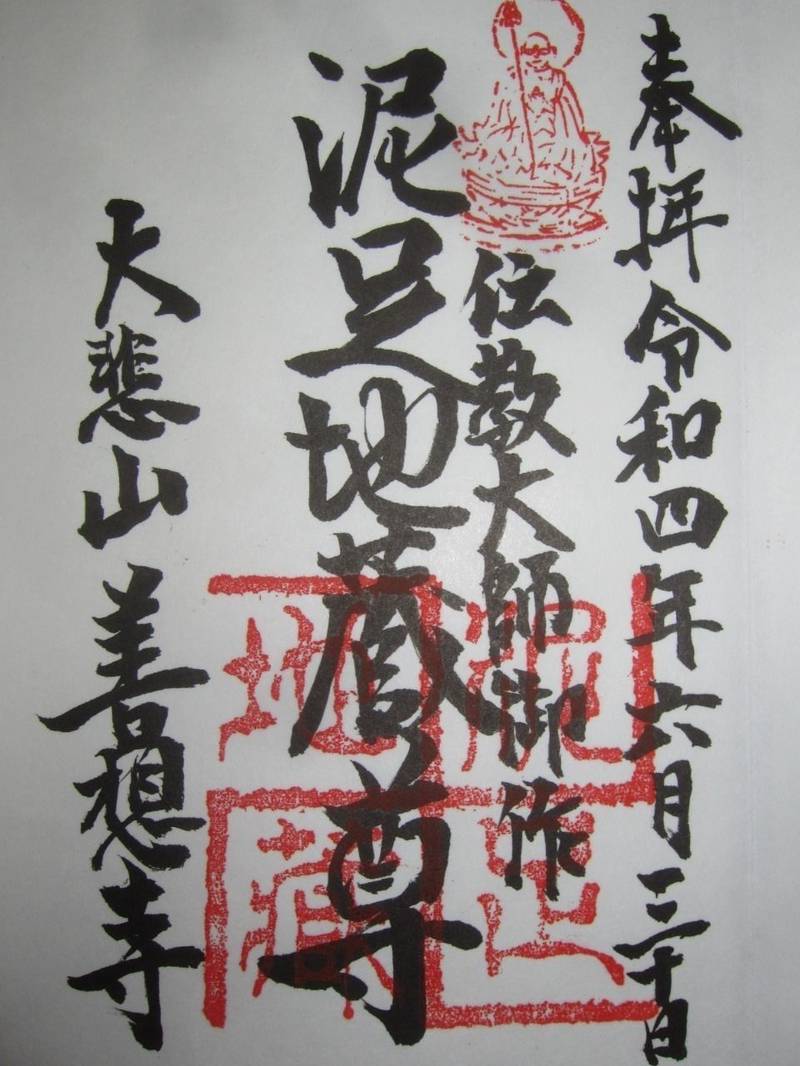 奉拝 令和四年六月三十日
伝教大師御作
泥足地蔵尊
大悲山 善想寺
泥足地蔵